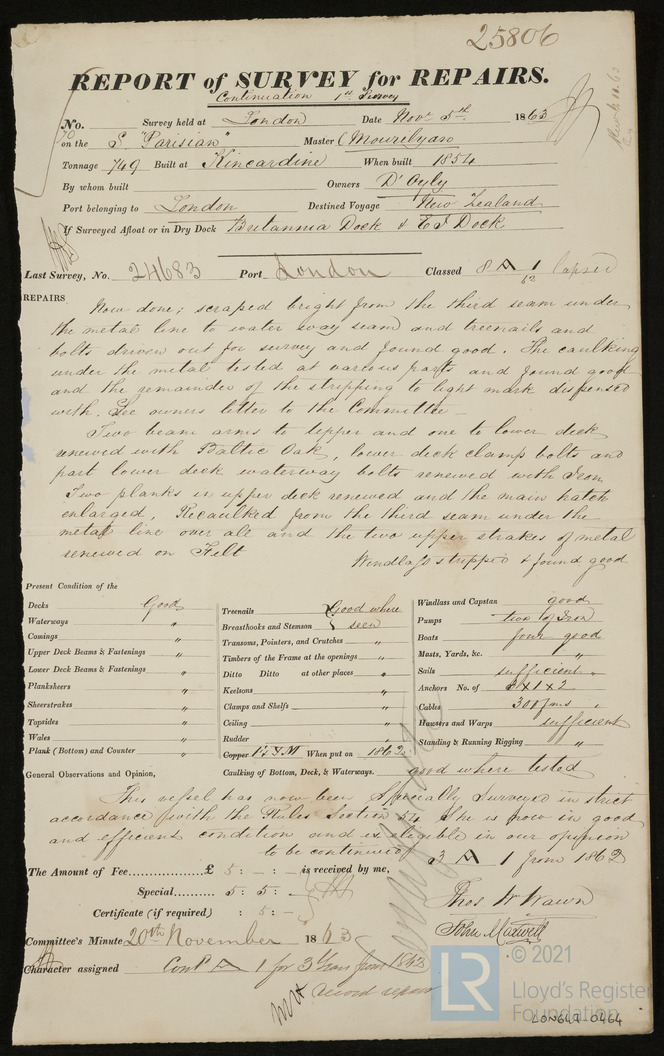 25806
REPORT of SURVEY for REPAIRS.
Continuation 1st Survey
No. Survey held at London Date Novr 5th 1863
on the S. "Parisian" Master Mourilyan
Tonnage 749 Built at Kincardine When built 1854
By whom built Owners D'Oyly
Port belonging to London Destined Voyage New Zealand
If Surveyed Afloat or in Dry Dock Britannia Dock & E I Dock
Last Survey, No. 24683 Port London Classed 8 A 1 lapsed
62
REPAIRS
Now done; scraped bright from the third seam under
the metal line to water way seam and treenails and
bolts driven out for survey and found good. The caulking
under the metal tested at various parts and found good
and the remainder of the stripping to light mark dispensed
with. See owners letter to the Committee
Two beam arms to upper and one to lower deck
renewed with Baltic Oak, lower deck clamp bolts and
part lower deck waterway bolts renewed with Iron
Two planks in upper deck renewed and the main hatch
enlarged, Recaulked from the third seam under the
metal line over all and the two upper strakes of metal
renewed on Felt
Windlass stripped & found good
Present Condition of the
Decks Good
Waterways "
Comings "
Upper Deck Beams & Fastenings "
Lower Deck Beams & Fastenings "
Planksheers "
Sheerstrakes "
Topsides "
Wales "
Plank (Bottom) and Counter "
Treenails Good where
Breasthooks and Stemson seen
Transoms, Pointers, and Crutches "
Timbers of the Frame at the openings "
Ditto Ditto at other places "
Keelsons "
Clamps and Shelfs "
Ceiling "
Rudder "
Copper Y.M When put on 1862
Windlass and Capstan good
Pumps two of Iron
Boats four good
Masts, Yards, &c. "
Sails sufficient
Anchors No. of 3 x 1 x 2
Cables 300 fms
Hawsers and Warps sufficient
Standing & Running Rigging "
General Observations and Opinion, Caulking of Bottom, Deck, & Waterways. good where tested
This vessel has now been Specially Surveyed in strict
accordance with the Rules Section 54 She is now in good
and efficient condition and is eligible in our opinion
to be continued 3 A 1 from 1862
The Amount of Fee £ 5 : - : - is received by me,
Special 5 : 5 : -
Certificate (if required) : 5 : -
Thos W Wawn
John Maxwell
Committee's Minute 20th November 1863
Character assigned Contd A 1 for 3 Years from 1862
record repairs
© 2021
LR
Lloyd's Register
Foundation
LON649-0464